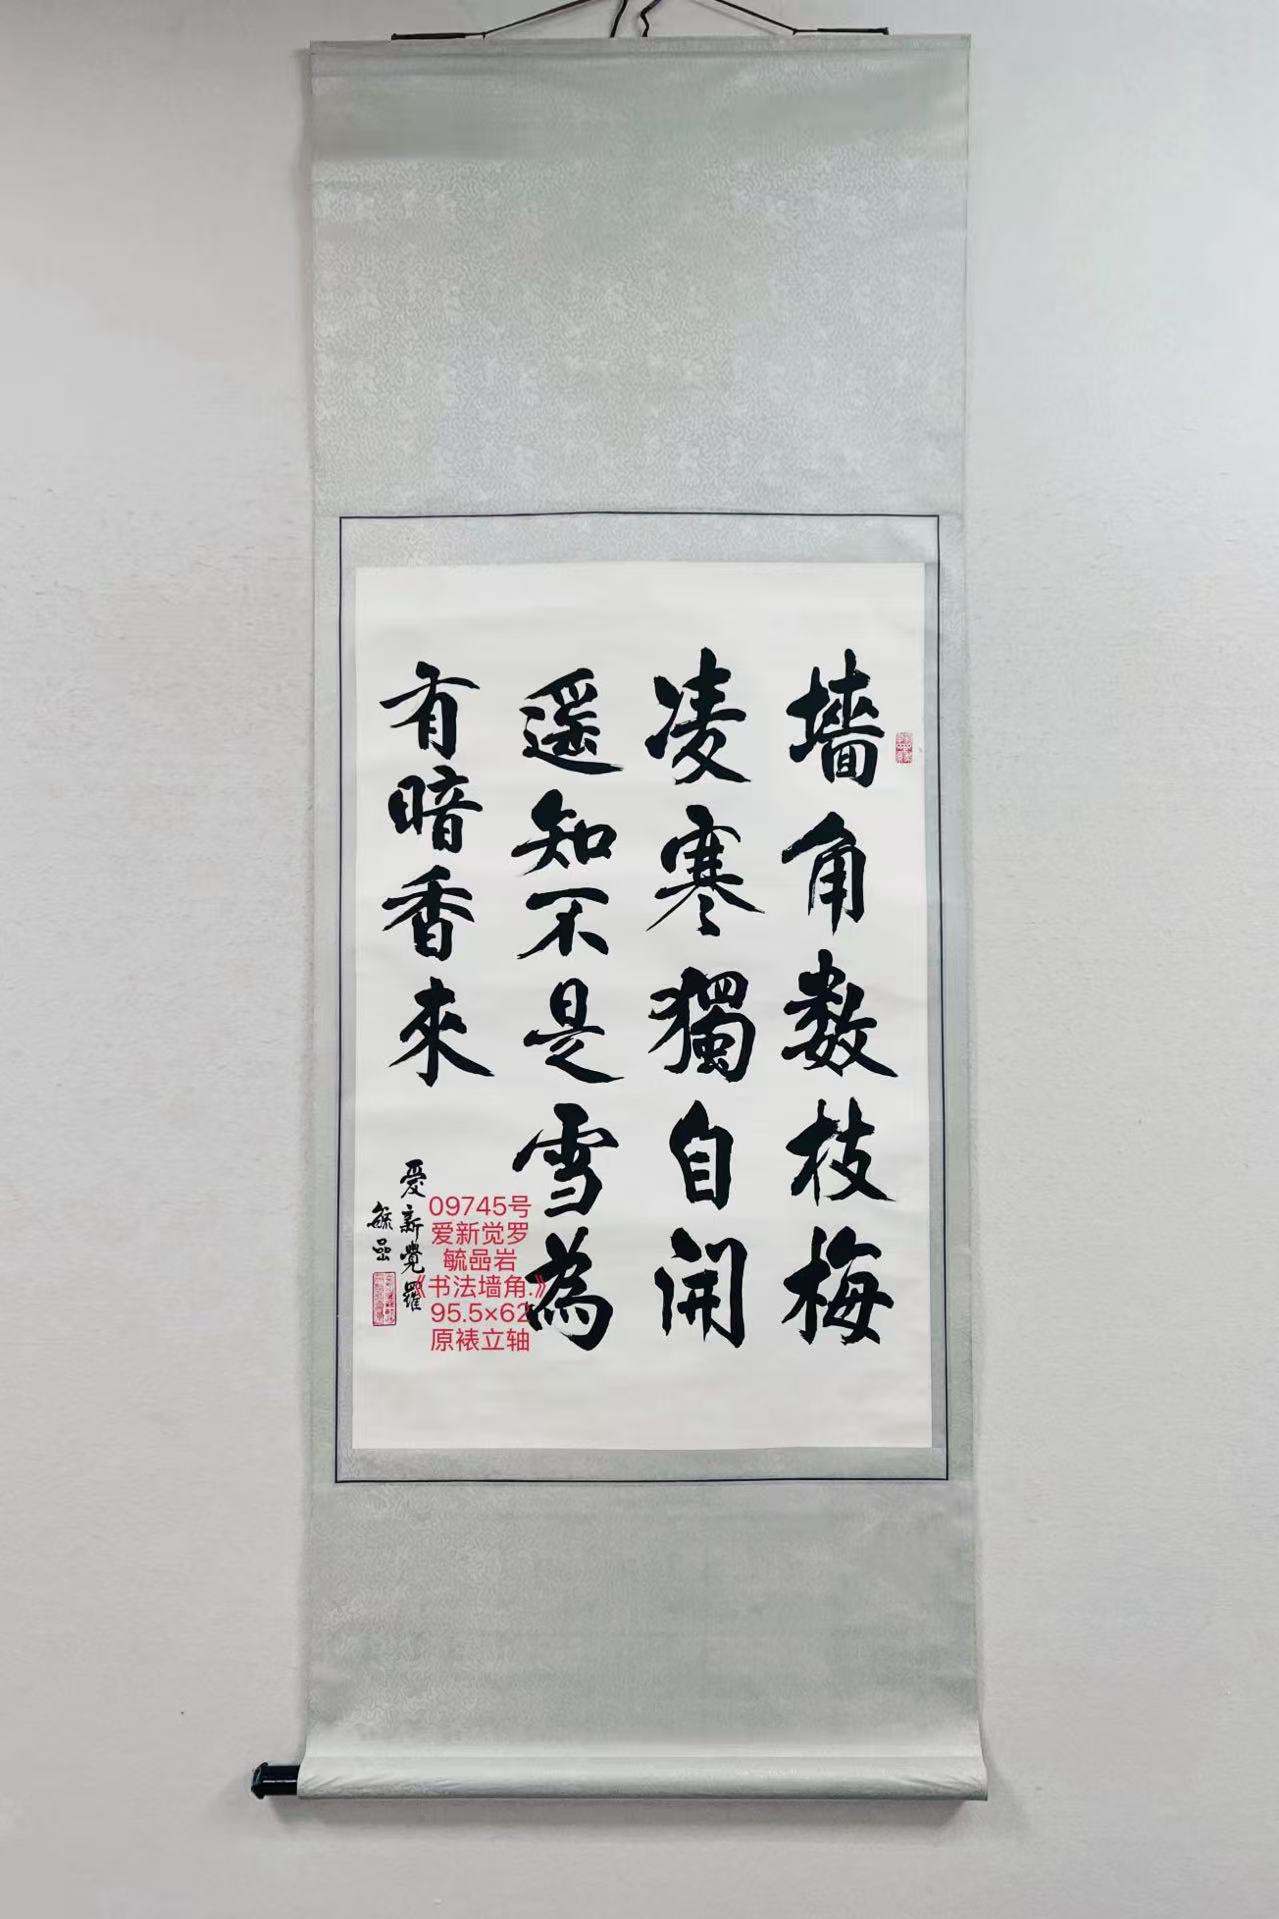 墻角数枝梅
凌寒獨自開
遥知不是雪為
有暗香來
愛新覺羅
毓嵒
09745号
爱新觉罗
毓嵒岩
《书法墙角.》
95.5×62
原裱立轴